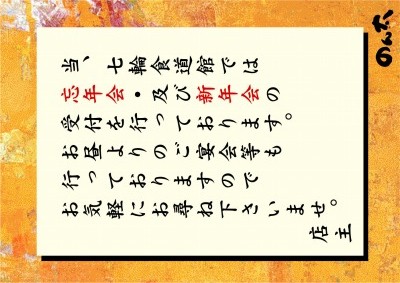 のん太
当、七輪食道館では
忘年会・及び新年会の
受付を行っております。
お昼よりのご宴会等も
行っておりますので
お気軽にお尋ね下さいませ。
店主